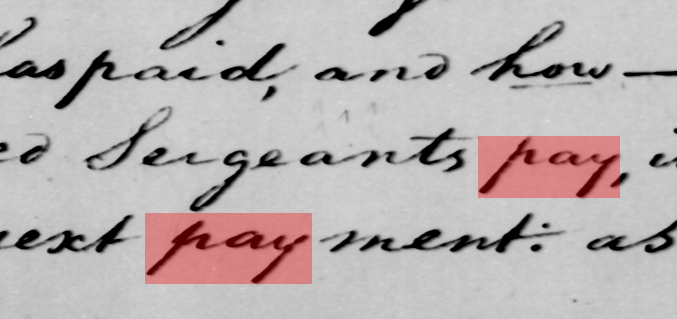 as paid, and how—
ed Sergeants pay,
next payment: as